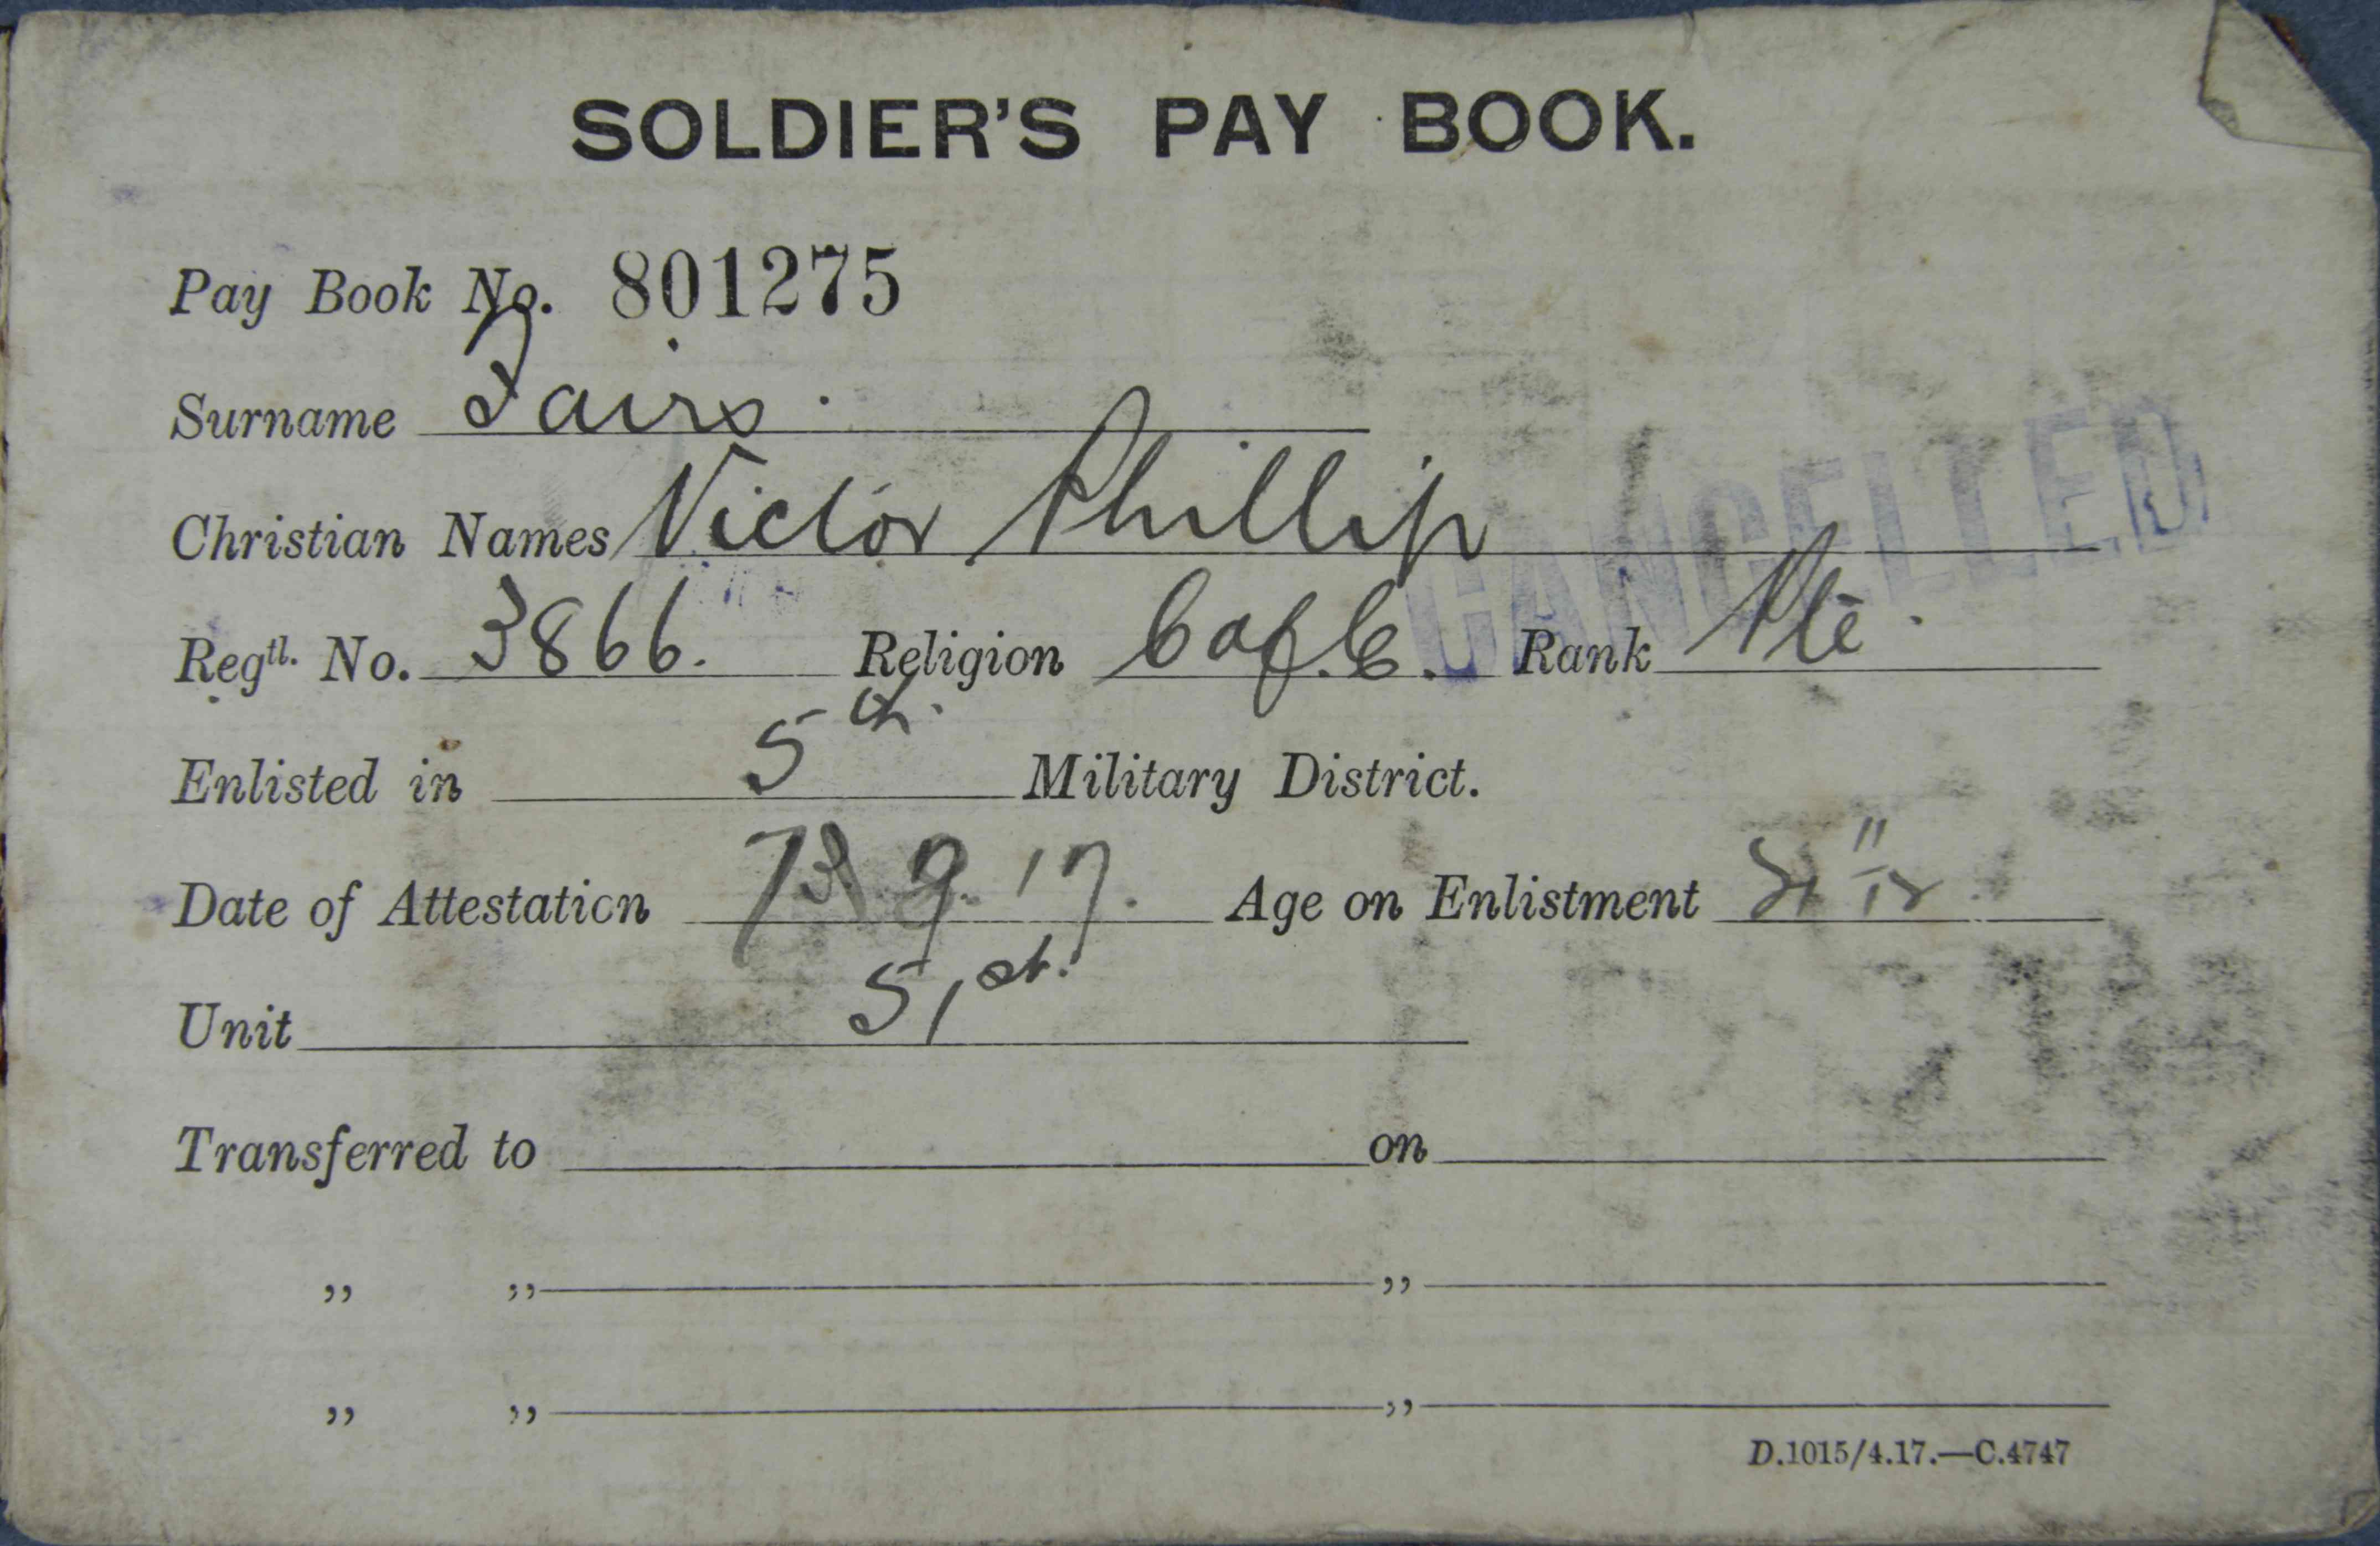 SOLDIER'S PAY BOOK.
Pay Book No. 801275
Surname
Christian Names Victor Phillip
Regtl. No. 3866. Religion C of C. Rank Pte.
CANCELLED
Enlisted in 5th. Military District.
Date of Attestation 9. 17. Age on Enlistment
Unit 51st.
Transferred to on
„ „ „
„ „ „
D.1015/4.17.—C.4747